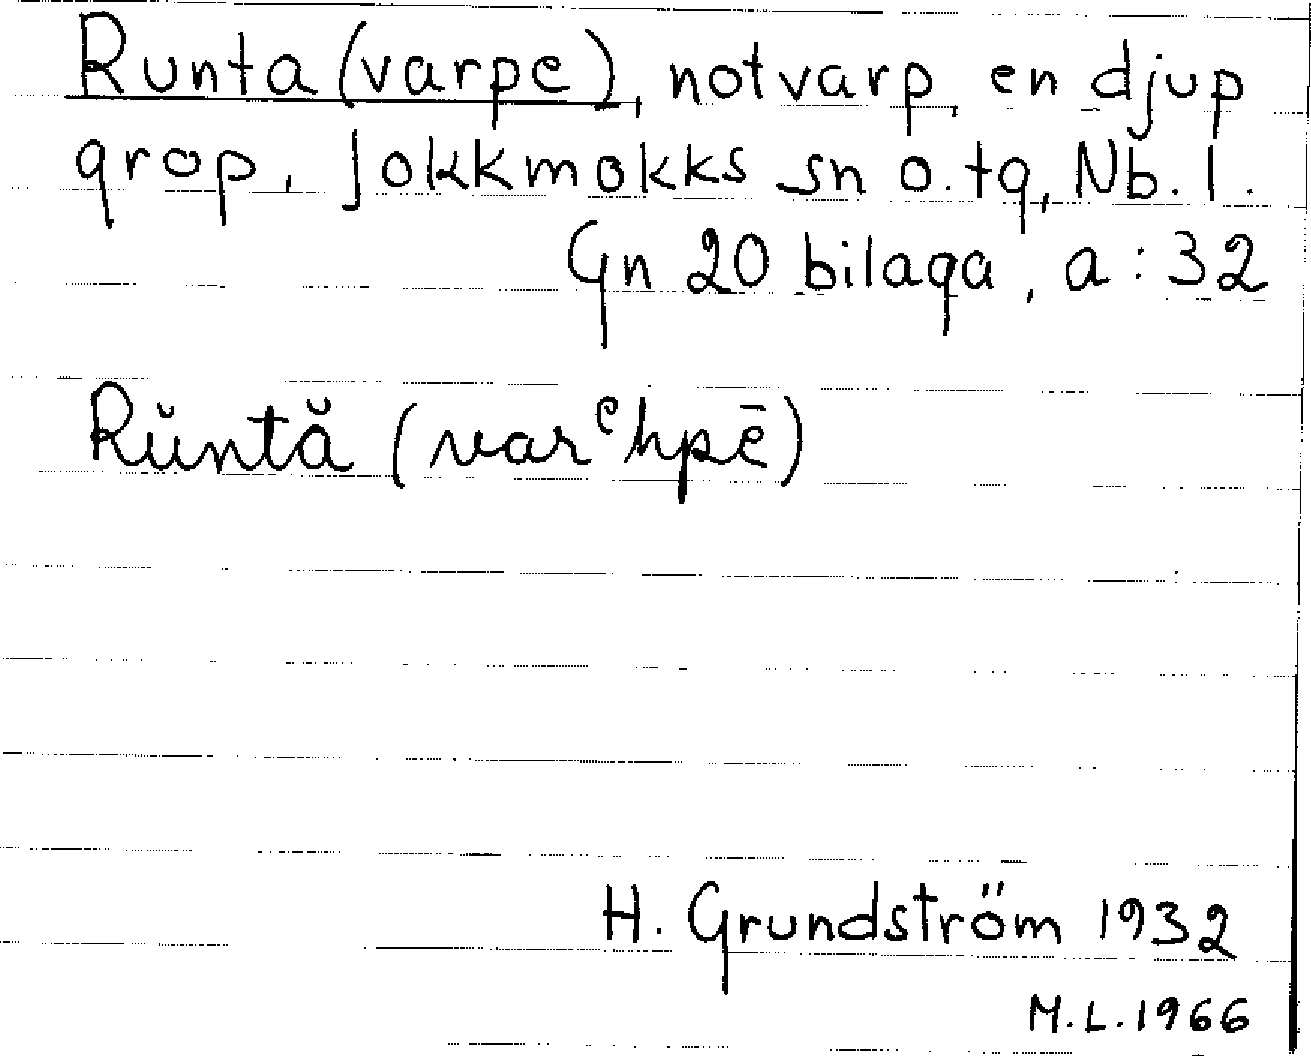 Runta (varpe), notvarp, en djup
grop, Jokkmokks sn o. tg, Nb. l.
Gn 20 bilaga, a: 32
Rŭntă (varᵉhpē)
H. Grundström 1932
M.L. 1966